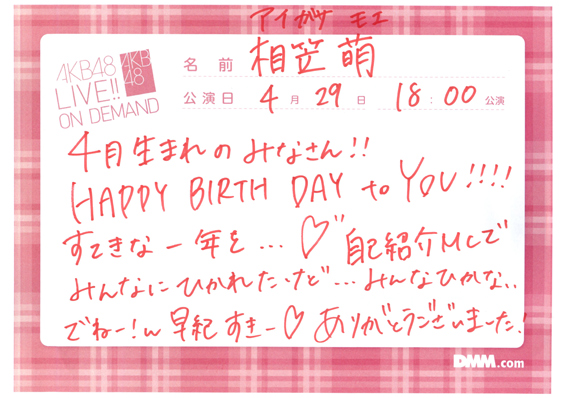 アイガサ モエ
AKB48
LIVE!!
ON DEMAND
AKB
48
名前 相笠 萌
公演日 4月29日 18:00公演
4月生まれのみなさん!!
HAPPY BIRTH DAY to YOU!!!!
すてきな一年を…♡"自己紹介MCで
みんなにひかれたけど…みんなひかない
でねー!w 早紀すきー♡ありがとうございました!
DMM.com